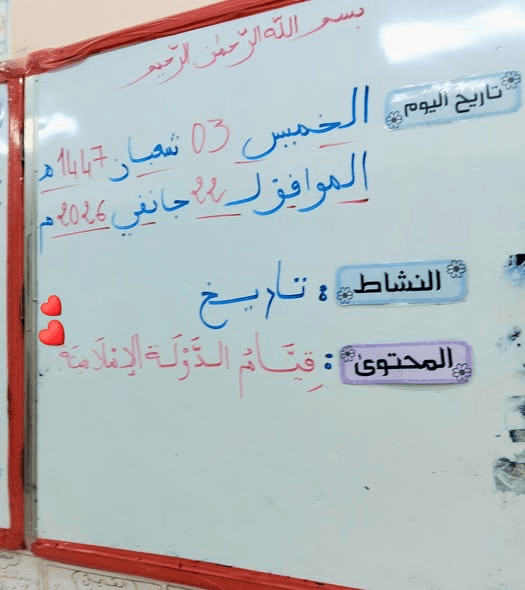 بسم الله الرّحمٰن الرّحيم
تاريخ اليوم
الخميس 03 شعبان 1447هـ
الموافق لـ 22 جانفي 2026م
النشاط : تاريخ
المحتوى : قِيَّامُ الدَّوْلَة الإِسْلَامِيَّة.